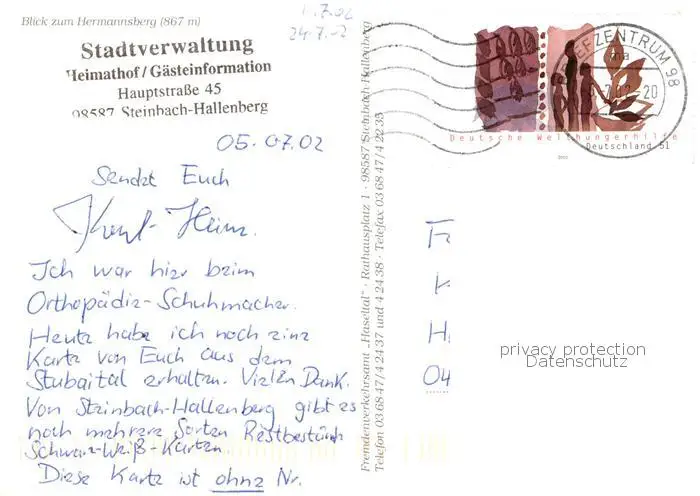 Blick zum Hermannsberg (867 m)
Stadtverwaltung
Heimathof/Gästeinformation
Hauptstraße 45
98587 Steinbach-Hallenberg
24.7.02
05.07.02
Sendet Euch
Karl-Heinz.
Ich war hier beim
Orthopädie-Schuhmacher.
Heute habe ich noch eine
Karte von Euch aus dem
Stubaital erhalten. Vielen Dank.
Von Steinbach-Hallenberg gibt es
noch mehrere Sorten Restbestände
Schwarz-Weiß-Karten
Diese Karte ist ohne Nr.
Fremdenverkehrsamt „Haseltal" · Rathausplatz 1 · 98587 Steinbach-Hallenberg
Telefon 03 68 47/4 24 37 und 4 24 38 · Telefax 03 68 47/4 22 35
BRIEFZENTRUM 98
Deutsche Welthungerhilfe
Deutschland 51
2002
Fr
K
H
04
privacy protection
Datenschutz